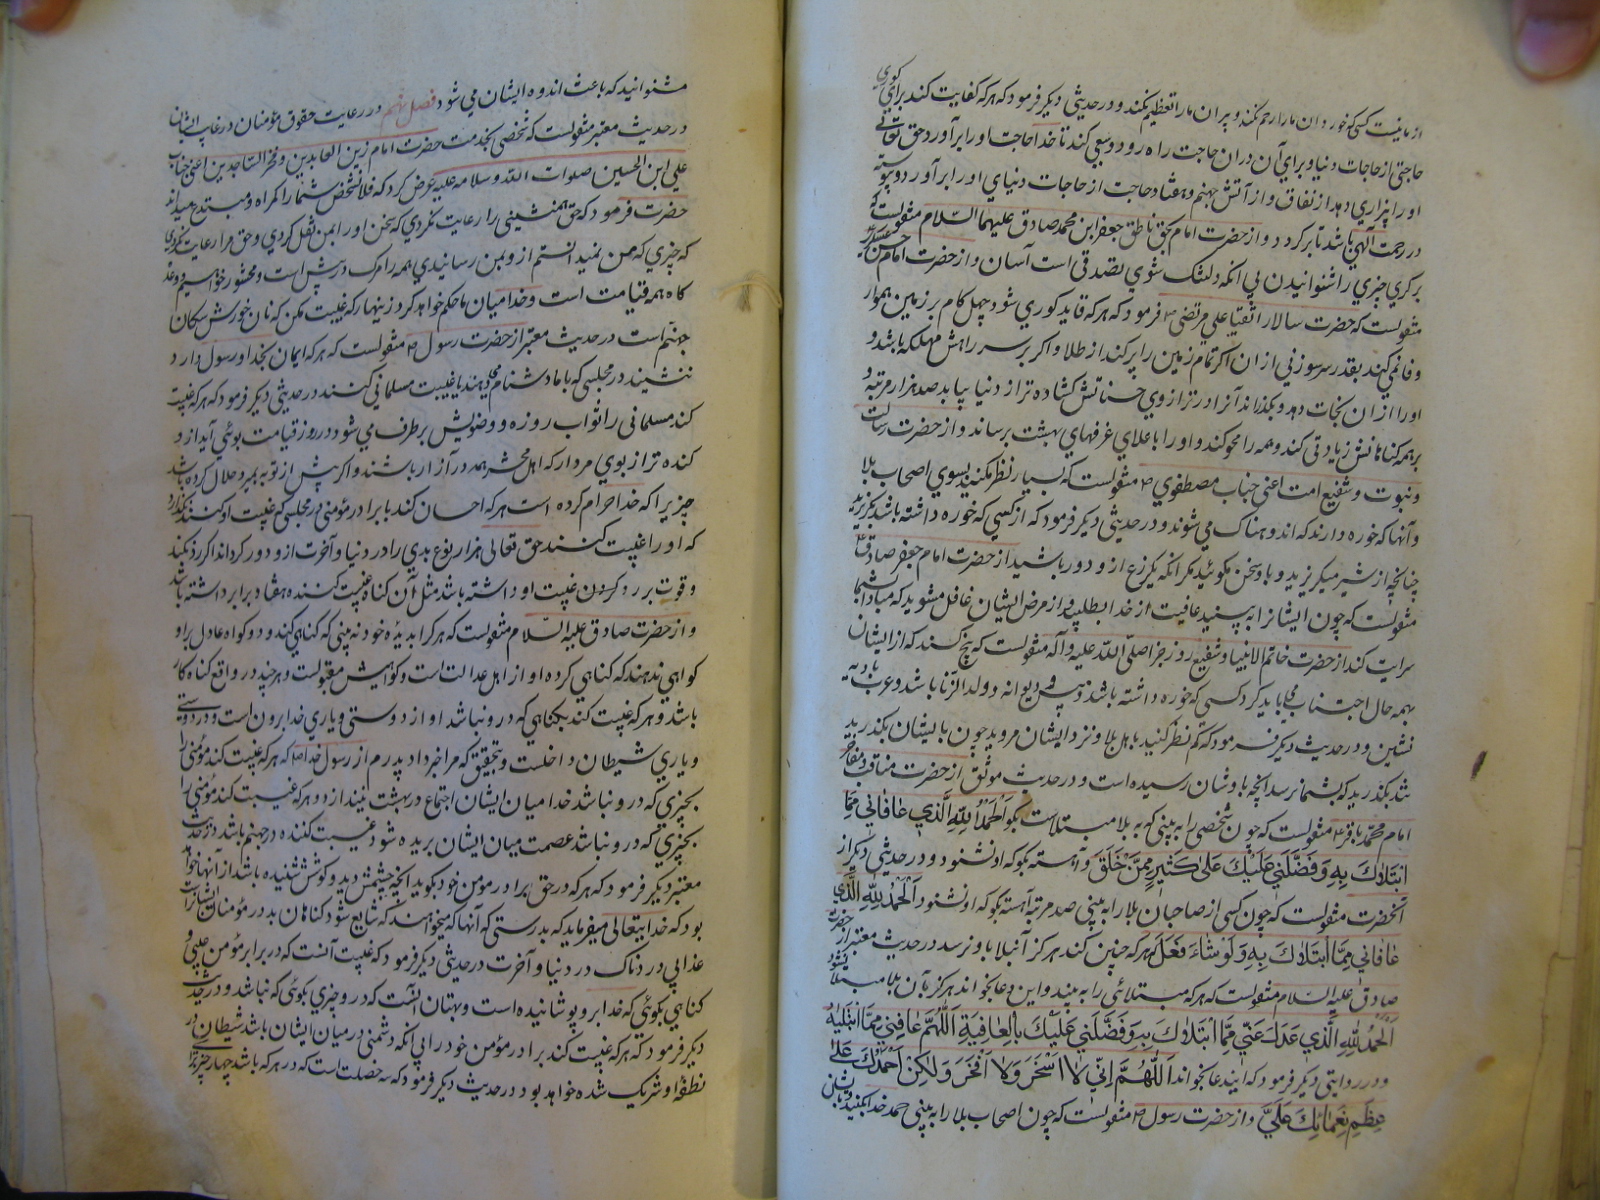 از ما نیست کسی که خوردان ما را رحم نکند و پیران ما را تعظیم نکند و در حدیثی دیگر فرمود که هر که کفایت کند برای کوری
حاجتی از حاجات دنیا و برای آن دران حاجت راه رود و سعی کند تا خدا حاجت او را برآورد حق تعالی
او را بیزاری دهد از نفاق و از آتش جهنم و هفتاد حاجت از حاجات دنیای او را برآورد و پیوسته
در رحمت الهی باشد تا برگردد و از حضرت امام بحق ناطق جعفر ابن محمد صادق علیهما السلام منقولست که
بر کری چیزی را شنوانیدن بی آنکه دلتنک شوی تصدقی است آسان و از حضرت امام حسن عسکری
منقولست که حضرت سالار اتقیا علی مرتضی فرمود که هر که قاید کوری شود چهل کام بر زمین هموار
وفا نمی کند بقدر سر سوزنی از ان اکر تمام زمین را پر کند از طلا و اکر بر سر راهش مهلکه باشد و
او را از ان نجات دهد و بکذراند آنرا در ترازوی حسناتش کشاده تر از دنیا بیابد صد هزار مرتبه و
بر همه کناهانش زیادتی کند و همه را محو کند و او را با علای غرفهای بهشت برساند و از حضرت رسالت
و نبوت و شفیع امت اعنی جناب مصطفوی ص منقولست که بسیار نظر مکنید بسوی اصحاب بلا
و آنها که خوره دارند که اندوهناک می شوند و در حدیثی دیگر فرمود که از کسی که خوره داشته باشد بکریزید
چنانچه از شیر میکریزید و با او سخن مکوئید مکر آنکه یکزرع از او دور باشید از حضرت امام جعفر صادق ع
منقولست که چون ایشانرا به بینید عافیت از خدا بطلبید و از مرض ایشان غافل مشوید که مبادا بشما
سرایت کند از حضرت خاتم الانبیا و شفیع روز جزا صلی الله علیه و آله منقولست که پنج کسند که از ایشان
بهمه حال اجتناب می باید کرد کسی که خوره داشته باشد و پیس و دیوانه و ولد الزنا باشد و عرب بادیه
نشین و در حدیث دیکر فرمود که کم نظر کنید باهل بلا و نزد ایشان مروید چون بایشان بکذرید
تند بکذرید که بشما نرسد آنچه باوشان رسیده است و در حدیث موثق از حضرت مناقب و مفاخر
امام محمد باقر ع منقولست که چون شخصی را به بینی که به بلا مبتلاست بکو الحمد لله الذي عافاني مما
ابتلاك به وفضلني عليك على كثير ممن خلق و آهسته بکو که او نشنود و در حدیثی دیکر از
آنحضرت منقولست که چون کسی از صاحبان بلا را به بینی صد مرتبه آهسته بکو که او نشنود الحمد لله الذي
عافاني مما ابتلاك به ولو شاء فعل هر که چنین کند هرکز آنبلا باو نرسد در حدیث معتبر از حضرت
صادق علیه السلام منقولست که هر که مبتلائی را به بیند و این دعا بخواند هرکز بآن بلا مبتلا نشود
الحمد لله الذي عدل عني مما ابتلاك به وفضلني عليك بالعافية اللهم عافني مما ابتليته
و در روایتی دیگر فرمود که ایندعا بخواند اللهم اني لا اسخر ولا افخر ولكن احمدك على
عظم نعمائك علي و از حضرت رسول ص منقولست که چون اصحاب بلا را به بینی حمد خدا بکنید و بایشان
مشنوانید که باعث اندوه ایشان می شود فصل نهم در رعایت حقوق مؤمنان در غایب ایشان
در حدیث معتبر منقولست که شخصی بخدمت حضرت امام زین العابدین و فخر الساجدین اعنی جناب
علی ابن الحسین صلوات الله و سلامه علیه عرض کرد که فلانشخص شما را کمراه و مبتدع میداند
حضرت فرمود که حق همنشینی را رعایت نکردی که سخن او را بمن نقل کردی و حق مرا رعایت نکردی
که چیزی که من نمیدانستم از او بمن رسانیدی همه را مرک در پیش است و محشور خواهیم شد و وعده
کاه همه قیامت است و خدا میان ما حکم خواهد کرد زینهار که غیبت مکن که نان خورش سکان
جهنم است در حدیث معتبر از حضرت رسول ص منقولست که هر که ایمان بخدا و رسول دارد
ننشیند در مجلسی که باما دشنام می دهند یا غیبت مسلمانی کنند در حدیثی دیکر فرمود که هر که غیبت
کند مسلمانی را ثواب روزه و وضویش برطرف می شود در روز قیامت بوئی آید از و
کنده تر از بوی مردار که اهل محشر همه در آزار باشند و اکر پیش از توبه بمیرد حلال کرده باشد
چیزیرا که خدا حرام کرده است هر که احسان کند با برادر مؤمنی در مجلسی که غیبت او کنند بکذارد
که او را غیبت کنند حق تعالی هزار نوع بدی را در دنیا و آخرت از و دور کرداند اکر رد نکند
و قوت بر رد کردن غیبت او داشته باشد مثل آن کناه غیبت کننده هفتاد برابر داشته باشد
و از حضرت صادق علیه السلام منقولست که هر کرا بدیده خود نه بینی که کناهی کند و دو کواه عادل بر او
کواهی ندهند که کناهی کرده او از اهل عدالت است و کواهیش مقبولست و هر چند در واقع کناه کار
باشد و هر که غیبت کند بکناهی که در و نباشد او از دوستی و یاری خدا برون است و در دوستی
و یاری شیطان داخلست و بتحقیق که مرا خبر داد پدرم از رسول خدا ص که هر که غیبت کند مؤمنی را
بچیزی که در و نباشد خدا میان ایشان اجتماع در بهشت نیندازد و هر که غیبت کند مؤمنی را
بچیزی که در و نباشد عصمت میان ایشان بریده شود غیبت کننده در جهنم باشد در حدیث
معتبر دیکر فرمود که هر که در حق برادر مؤمن خود بکوید آنچه چشمش دید و کوشش شنیده باشد از آنها خواهد
بود که خدایتعالی میفرماید که بدرستی که آنها که میخواهند که شایع شود کناهان بد در مؤمنان ایشانراست
عذابی دردناک در دنیا و آخرت در حدیثی دیکر فرمود که غیبت آنست که در برابر مؤمن عیبی و
کناهی بکوئی که خدا بر و پوشانیده است و بهتان آنست که در و چیزی بکوئی که نباشد و در حدیث
دیکر فرمود که هر که غیبت کند برادر مؤمن خود را بی آنکه دشمنی در میان ایشان باشد شیطان در
نطفهٔ او شریک شده خواهد بود در حدیث دیکر فرمود که سه خصلت است که در هر که باشد چهار چیز را